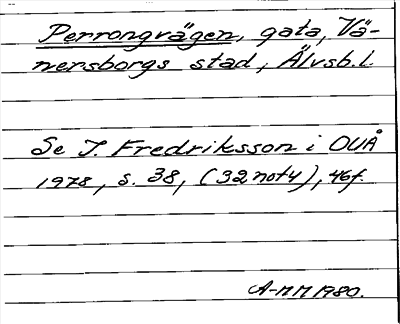 Perrongvägen, gata, Vä-
nersborgs stad, Älvsb.l.
Se I. Fredriksson i OUÅ
1978, s. 38, (32 not 4), 46f.
A-M M 1980.